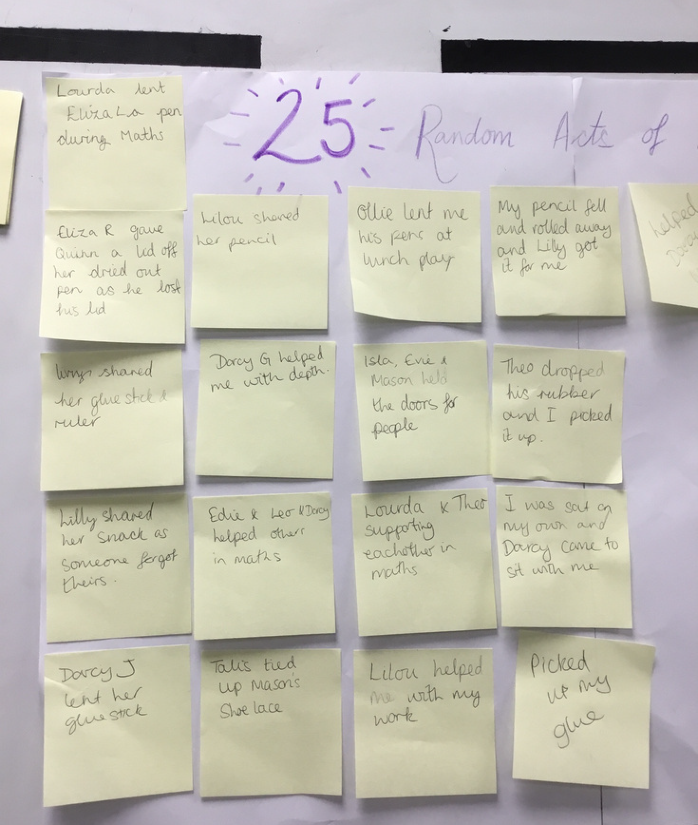 25 Random Acts of
Lourda lent
Eliza La pen
during Maths
Eliza R gave
Quinn a lid off
her dried out
pen as he lost
his lid
Lilou shared
her pencil
Ollie lent me
his pens at
lunch play
My pencil fell
and rolled away
and Lilly got
it for me
helped
Darcy
shared
her glue stick &
ruler
Darcy G helped
me with depth.
Isla, Evie &
Mason held
the doors for
people
Theo dropped
his rubber
and I picked
it up.
Lilly shared
her snack as
someone forgot
theirs.
Edie & Leo & Darcy
helped others
in maths
Lourda & Theo
supporting
eachother in
maths
I was sat on
my own and
Darcy came to
sit with me
Darcy J
lent her
glue stick
Talis tied
up Mason's
Shoe lace
Lilou helped
me with my
work
Picked
up my
glue